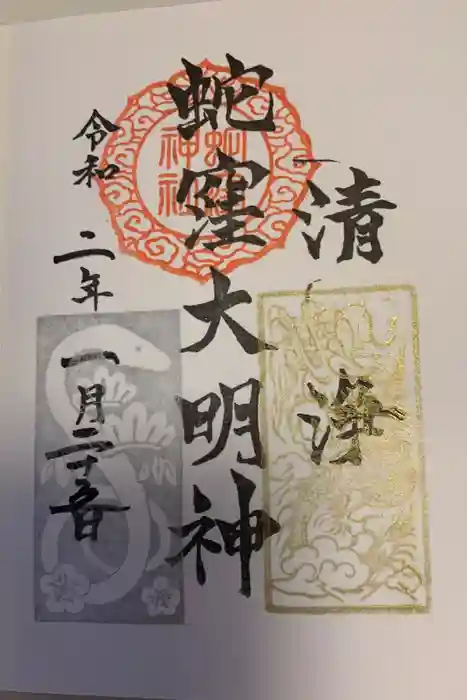 清浄
蛇窪大明神
令和二年一月二十五日
蛇窪
神社